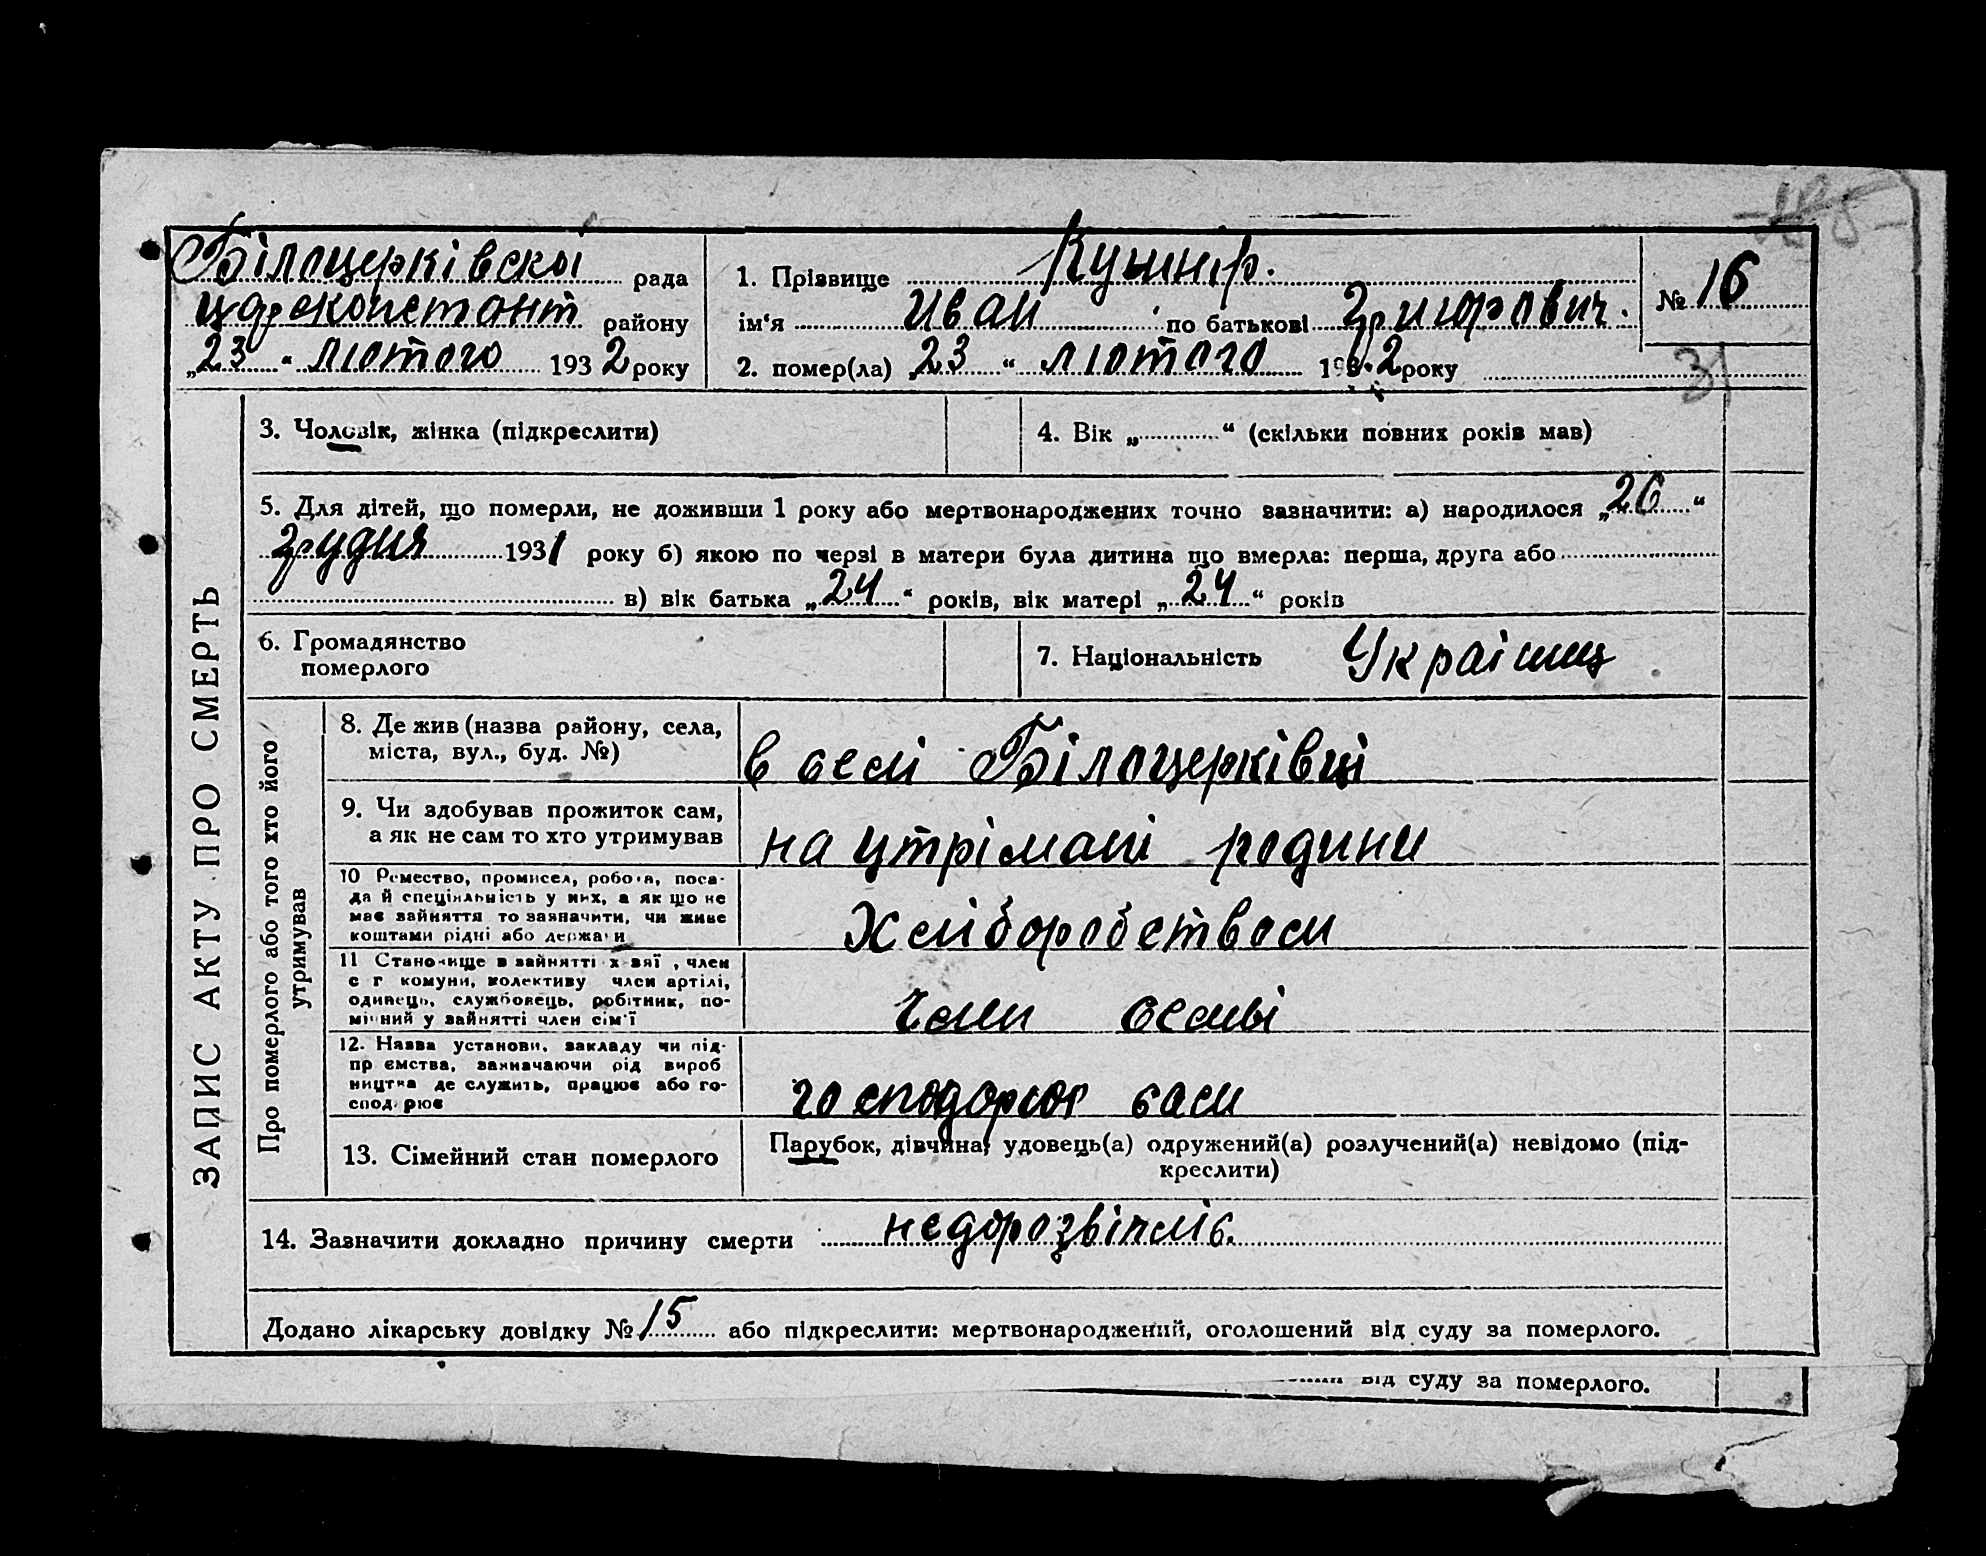 Білоцерківскої рада
району
„23“ лютого 1932 року
1. Прізвище Кушнір.
ім‘я Иван по батькові Григорович.
№ 16
2. помер(ла) „23“ лютого 193.2 року
31
ЗАПИС АКТУ ПРО СМЕРТЬ
3. Чоловік, жінка (підкреслити)
4. Вік „ “ (скільки повних років мав)
5. Для дітей, що померли, не доживши 1 року або мертвонароджених точно зазначити: а) народилося „26“
грудня 1931 року б) якою по черзі в матери була дитина що вмерла: перша, друга або
в) вік батька „24“ років, вік матері „24“ років
6. Громадянство
померлого
7. Національність Україниц
Про померлого або того хто його
утримував
8. Де жив (назва району, села,
міста, вул., буд. №)
в селі Білоцерківці
9. Чи здобував прожиток сам,
а як не сам то хто утримував
на утрімані родини
10 Ремество, промисел, робота, поса-
да й спеціяльність у них, а як що не
має зайняття то зазначити, чи живе
коштами рідні або держави
Хліборобством
11 Становище в зайнятті х-зяї , член
с г комуни, колективу член артілі,
одинець, службовець, робітник, по-
мічний у зайнятті член сім'ї
член семьі
12. Назва установи, закладу чи під-
пр ємства, зазначаючи рід вироб
ництва де служить, працює або го-
сподарює
господорює сам
13. Сімейний стан померлого
Парубок, дівчина, удовець(а) одружений(а) розлучений(а) невідомо (під-
креслити)
14. Зазначити докладно причину смерти недорозвіпліє.
Додано лікарську довідку № 15 або підкреслити: мертвонароджений, оголошений від суду за померлого.
від суду за померлого.